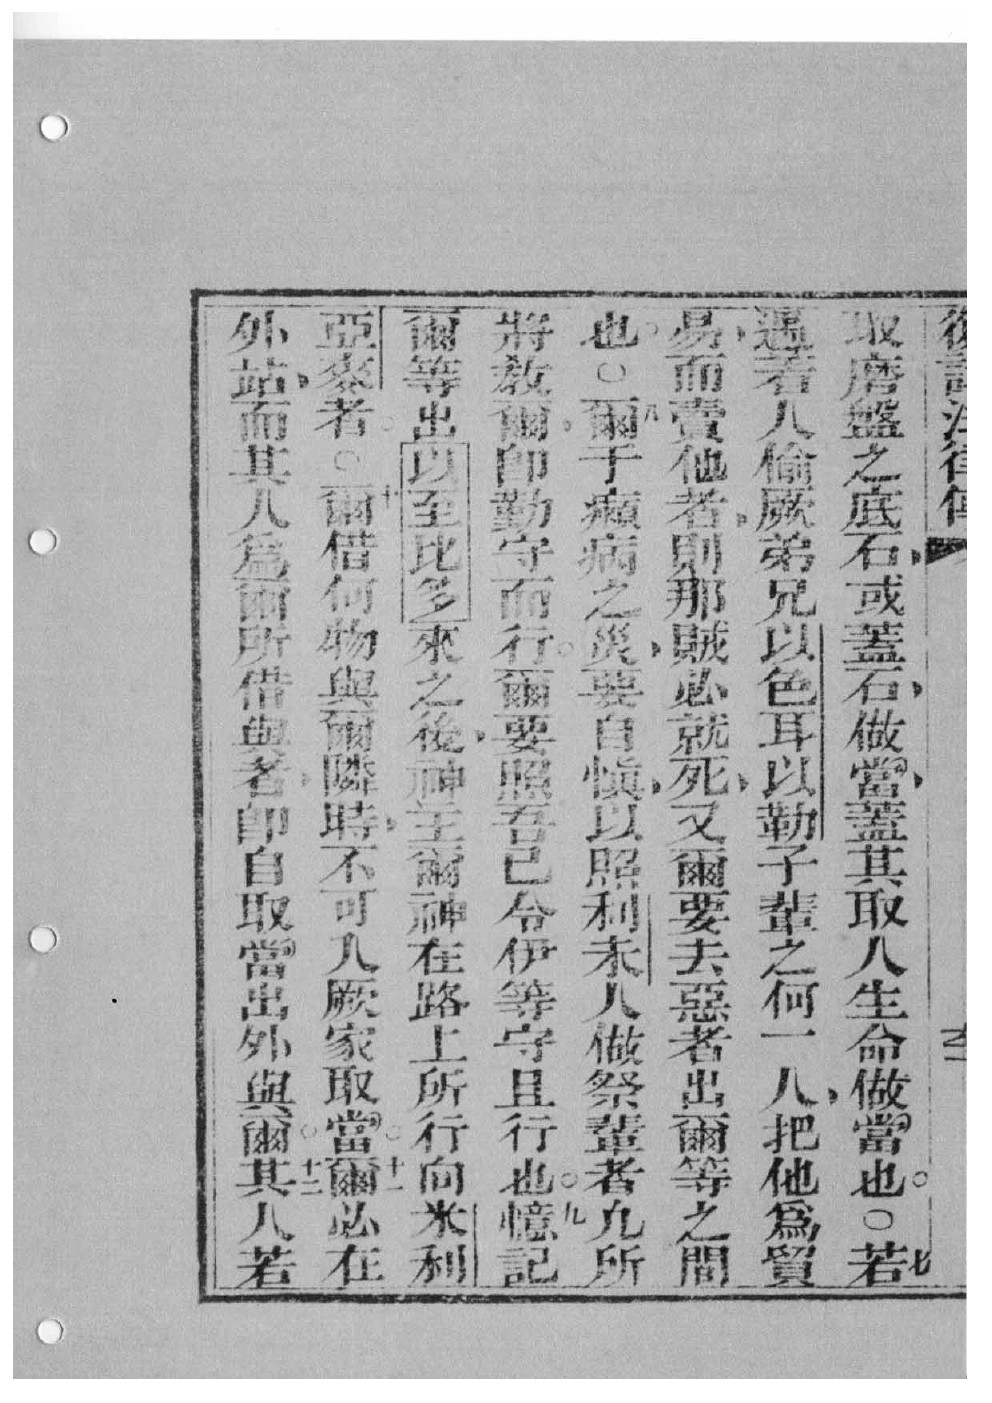 復講法律傳
取磨盤之底石或蓋石做當蓋其取人生命做當也○若七
遇著人偷厥弟兄以色耳以勒子輩之何一人把他爲貿
易而賣他者則那賊必就死又爾要去惡者出爾等之間
也○爾八于癩病之災要自愼以照利未人做祭輩者凡所
將敎爾卽勤守而行爾要照吾已令伊等守且行也憶九記
爾等出以至比多來之後神主爾神在路上所行向米利
亞來者○爾十借何物與爾隣時不可入厥家取當爾十一必在
外站而其人爲爾所借與者卽自取當出外與爾其十二人若